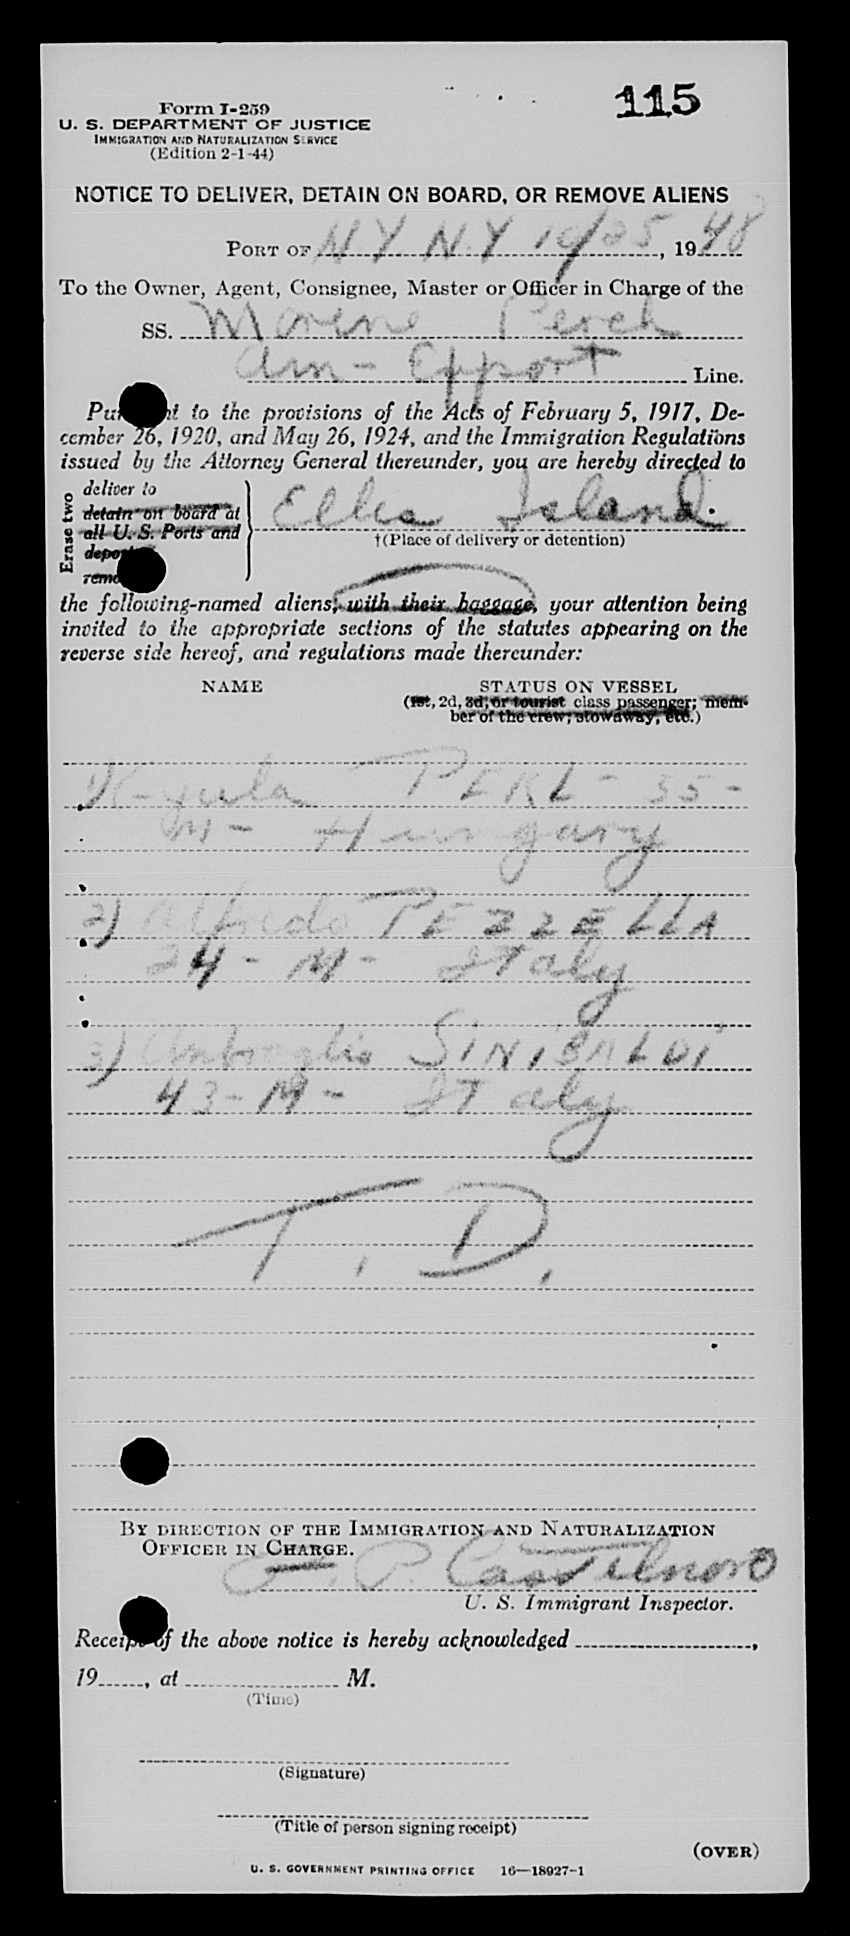 115
Form I-259
U. S. DEPARTMENT OF JUSTICE
IMMIGRATION AND NATURALIZATION SERVICE
(Edition 2-1-44)
NOTICE TO DELIVER, DETAIN ON BOARD, OR REMOVE ALIENS
PORT OF N Y N.Y 10/25, 1948
To the Owner, Agent, Consignee, Master or Officer in Charge of the
SS. Marine Perch
Am - Export Line.
Pursuant to the provisions of the Acts of February 5, 1917, De-
cember 26, 1920, and May 26, 1924, and the Immigration Regulations
issued by the Attorney General thereunder, you are hereby directed to
Erase two
deliver to
detain on board at
all U. S. Ports and
Ellis Island.
†(Place of delivery or detention)
the following-named aliens, with their baggage, your attention being
invited to the appropriate sections of the statutes appearing on the
reverse side hereof, and regulations made thereunder:
NAME
STATUS ON VESSEL
(1st, 2d, 3d, or tourist class passenger; mem-
ber of the crew; stowaway, etc.)
PERL - 35 -
M - Hungary
2) Alfredo PEZZELLA
24 - M - Italy
3) SINIBALDI
43 - M - Italy
T. D.
BY DIRECTION OF THE IMMIGRATION AND NATURALIZATION
OFFICER IN CHARGE.
P. Castelnovo
U. S. Immigrant Inspector.
Receipt of the above notice is hereby acknowledged ,
19 , at M.
(Time)
(Signature)
(Title of person signing receipt)
(OVER)
U. S. GOVERNMENT PRINTING OFFICE 16—18927-1